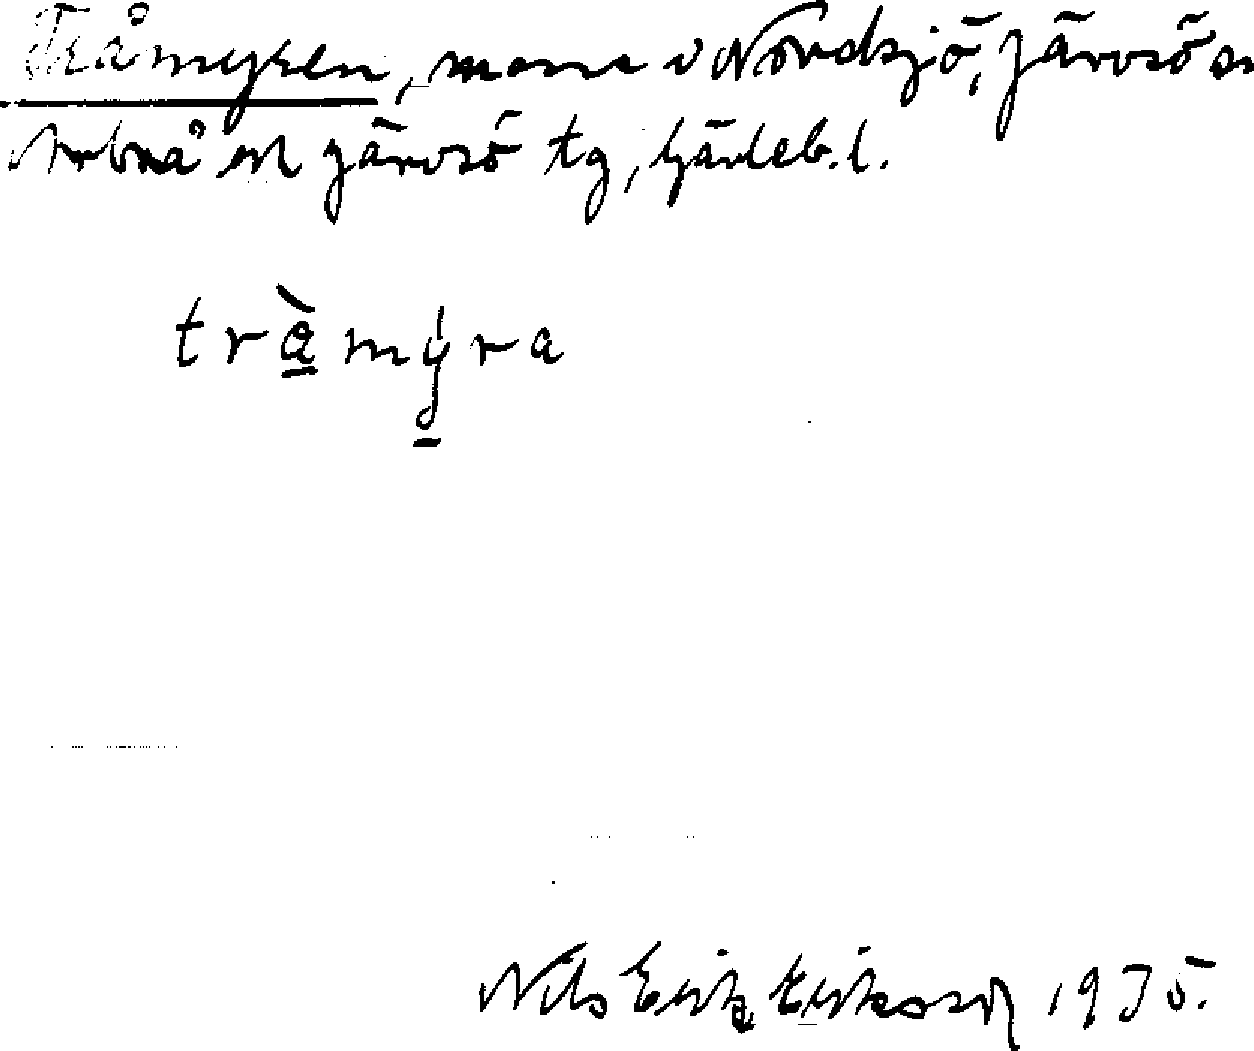 Tråmyren, mosse v Nordsjö, Järvsö sn
Arbrå och Järvsö tg, Gävleb. l.
trà̱mý̱ra
Nils Erik Eriksson 1935.